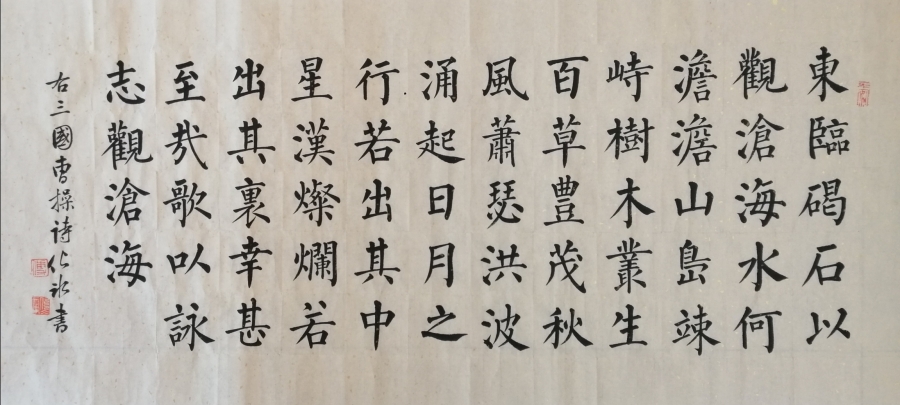 東臨碣石以
觀滄海水何
澹澹山島竦
峙樹木叢生
百草豐茂秋
風蕭瑟洪波
涌起日月之
行若出其中
星漢燦爛若
出其裏幸甚
至哉歌以詠
志觀滄海
右三國曹操詩書